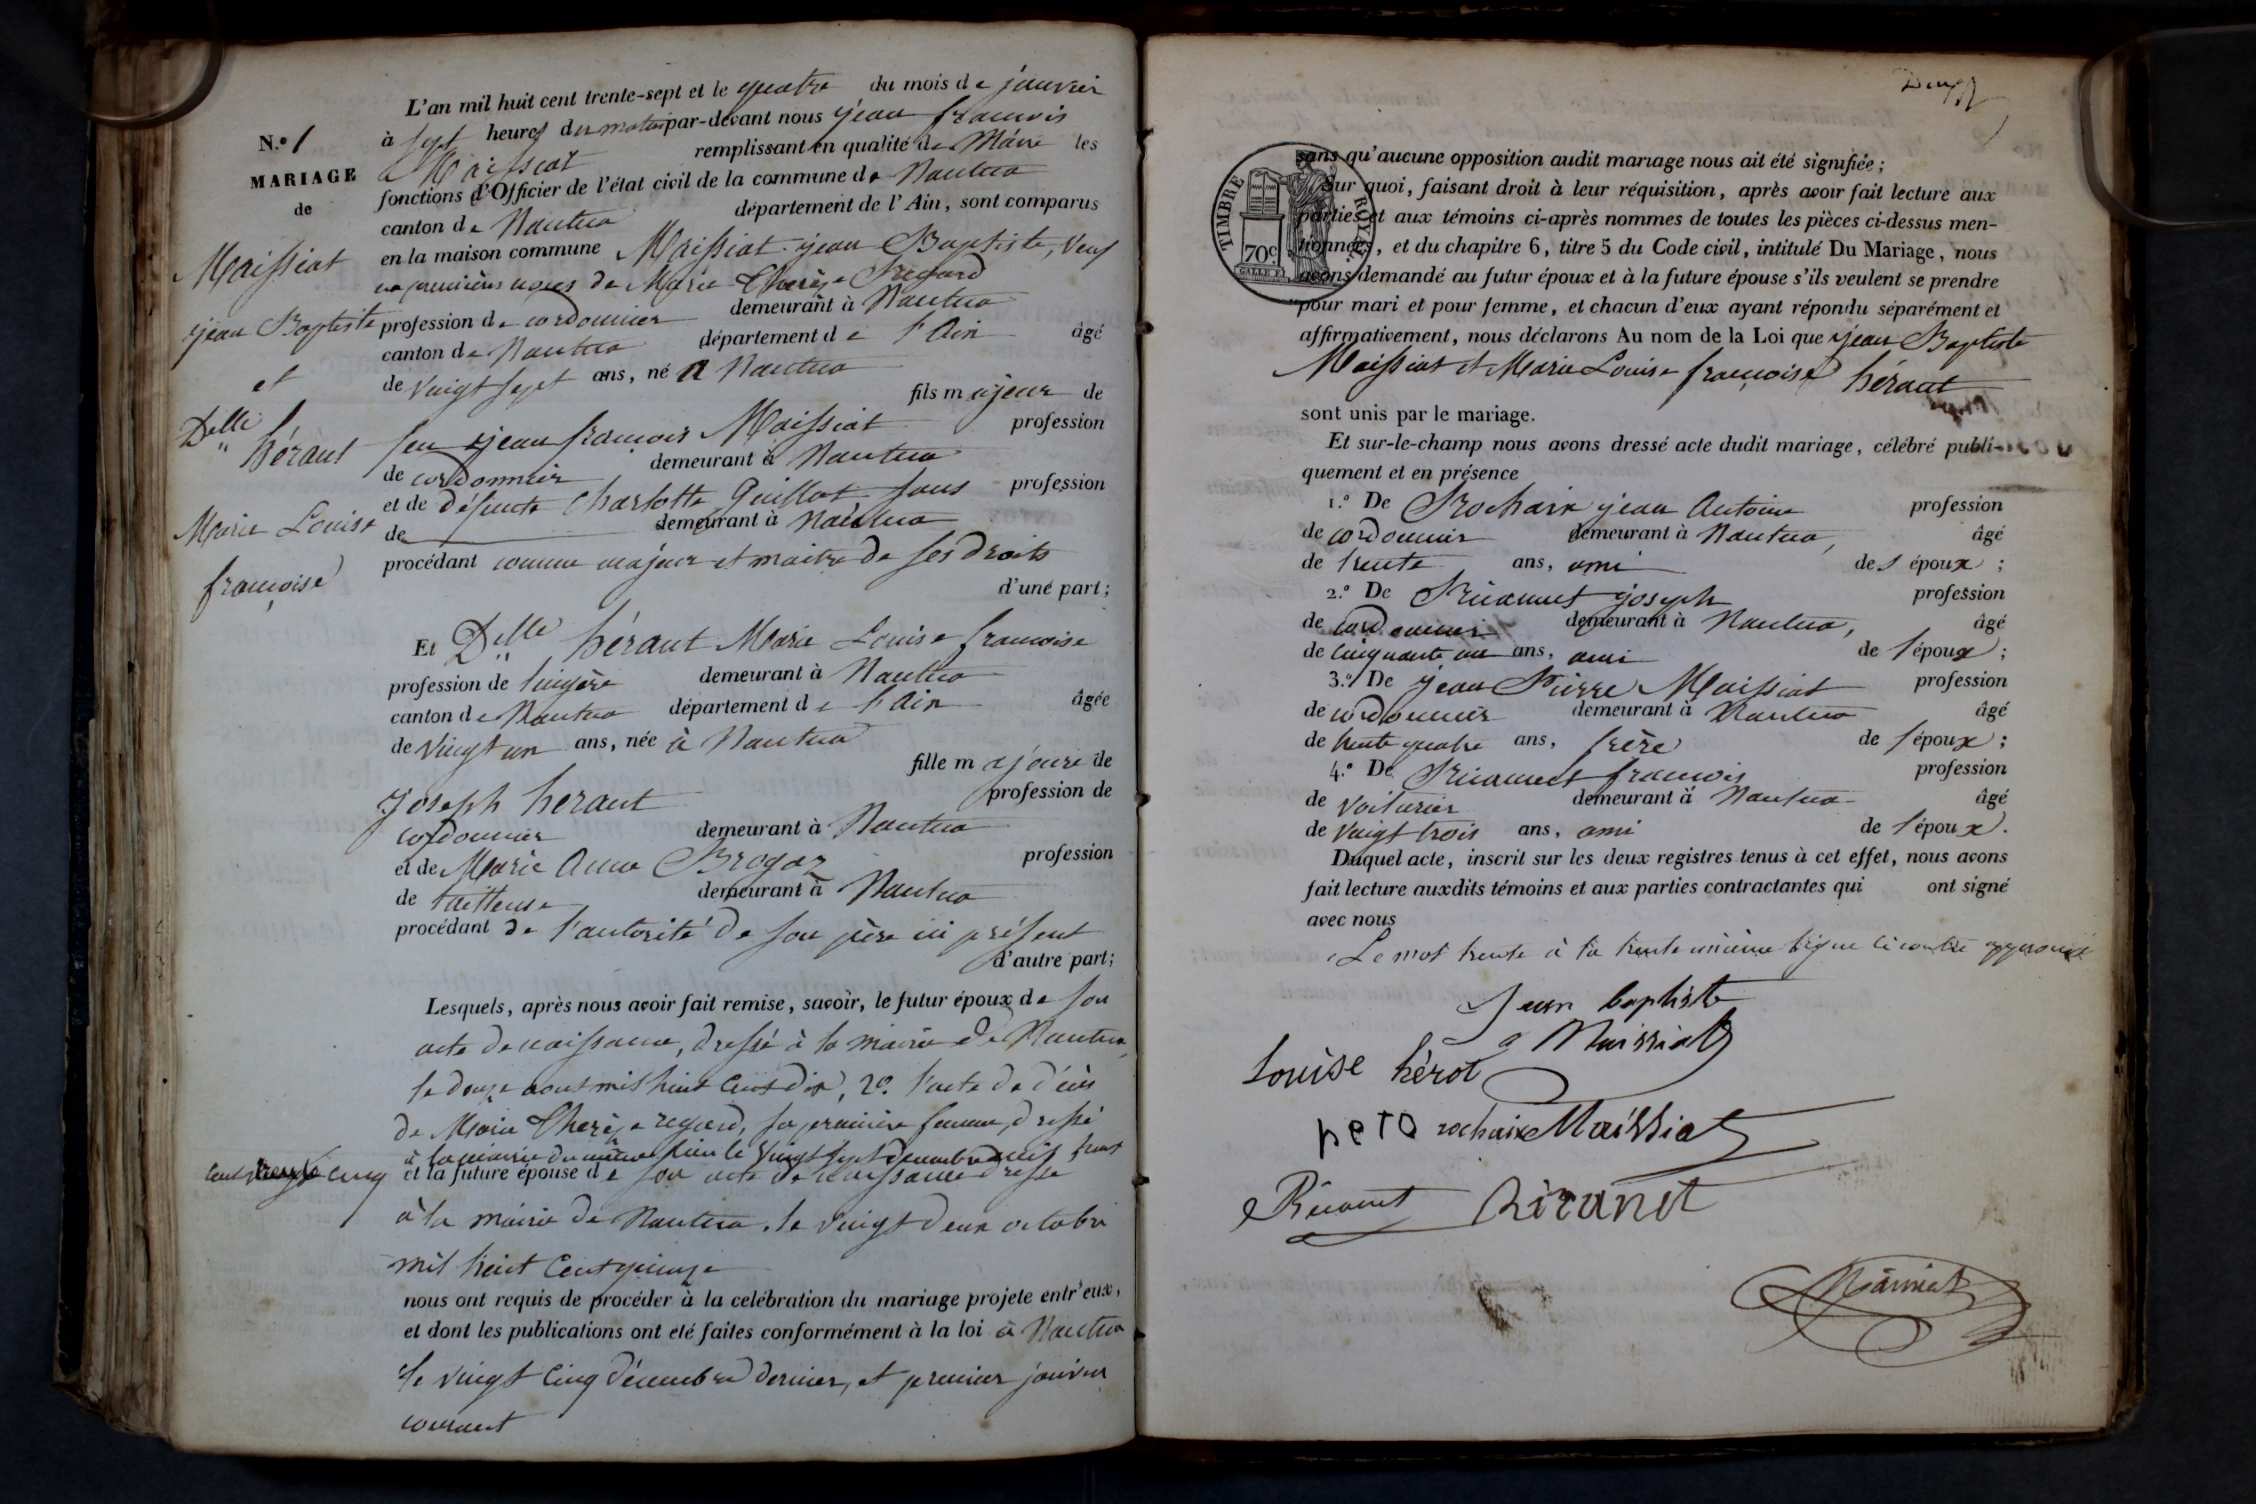 L'an mil huit cent trente-sept et le quatre du mois de janvier
à sept heures du matin par-devant nous jean françois
Maissiat remplissant en qualité de Maire les
fonctions d'Officier de l'état civil de la commune de Nantua
canton de Nantua département de l'Ain, sont comparus
en la maison commune Maissiat jean Baptiste, veuf
en premières noces de Marie Thérèse Regard
profession de cordonnier demeurant à Nantua
canton de Nantua département de l'Ain âgé
de vingt sept ans, né à Nantua
fils majeur de
feu jean françois Maissiat profession
de cordonnier demeurant à Nantua
et de défunte Charlotte Guillot sans profession
de demeurant à Nantua
procédant comme majeur et maitre de ses droits
d'une part;
Et Delle héraut Marie Louise francoise
profession de lingère demeurant à Nantua
canton de Nantua département de l'Ain âgée
de vingt un ans, née à Nantua
fille majeure de
Joseph heraut profession de
cordonnier demeurant à Nantua
et de Marie Anne profession
de tailleuse demeurant à Nantua
procédant de l'autorité de son père ici présent
d'autre part;
Lesquels, après nous avoir fait remise, savoir, le futur époux de son
acte de naissance, dressé à la mairie de Nantua,
le douze aout mil huit cent dix, 2º. l'acte de décès
de Marie Thérèse regard, sa première femme, dressé
à la mairie du même lieu le vingt sept decembre mil huit
et la future épouse de son acte de naissance dressé
à la mairie de Nantua, le vingt deux octobre
mil huit cent quinze
nous ont requis de procéder à la celébration du mariage projete entr'eux,
et dont les publications ont eté faites conformément à la loi à Nantua
le vingt cinq décembre dernier, et premier janvier
courant
N.º 1
MARIAGE
de
Maissiat
jean Baptiste
et
Delle héraut
Marie Louise
françoise
cent trente cinq
TIMBRE ROYAL
70c.
sans qu'aucune opposition audit mariage nous ait été signifiée;
Sur quoi, faisant droit à leur réquisition, après avoir fait lecture aux
parties et aux témoins ci-après nommes de toutes les pièces ci-dessus men-
tionnées, et du chapitre 6, titre 5 du Code civil, intitulé Du Mariage, nous
avons demandé au futur époux et à la future épouse s'ils veulent se prendre
pour mari et pour femme, et chacun d'eux ayant répondu séparément et
affirmativement, nous déclarons Au nom de la Loi que jean Baptiste
Maissiat et Marie Louise françoise héraut
sont unis par le mariage.
Et sur-le-champ nous avons dressé acte dudit mariage, célébré publi-
quement et en présence
1.º De Rochaix jean Antoine profession
de cordonnier demeurant à Nantua, âgé
de trente ans, ami de l époux;
2.º De joseph profession
de cordonnier demeurant à Nantua, âgé
de cinquante un ans, ami de l'époux;
3.º De jean Pierre Maissiat profession
de cordonnier demeurant à Nantua âgé
de trente quatre ans, frère de l'époux;
4.º De françois profession
de voiturier demeurant à Nantua âgé
de vingt trois ans, ami de l'époux.
Duquel acte, inscrit sur les deux registres tenus à cet effet, nous avons
fait lecture auxdits témoins et aux parties contractantes qui ont signé
avec nous
Le mot trente à la trente unième ligne ci contre approuvé
Jean baptiste
Maissiat
Louise hérot
rochaix Maissiat